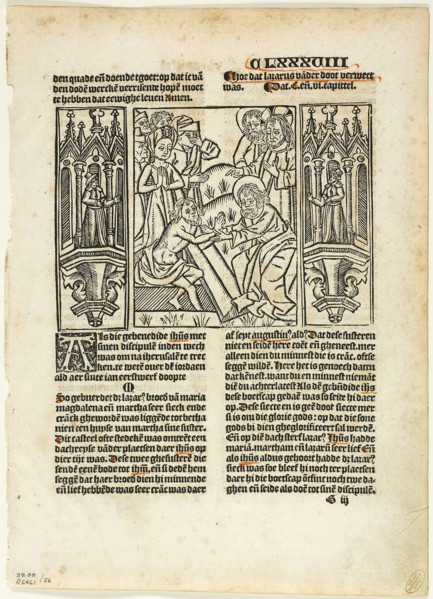 CLXXXVIII
den quade eñ doende tgoet: op dat ic vã
den dodẽ werckẽ verrisende hopẽ moet
te hebben dat eewighe leuen Amen.
Hoe dat lazarus vãder doot verwect
was. Dat .C. eñ. vi. capittel.
Als die gebenedide ihũs met
sinen discipulẽ indẽ
was om na iherusalẽ te trec
ken. te wetẽ ouer de iordaen
ald aer sinte ian eerstwerf doopte
So gebuerdet dz lazarꝰ broed vã maria
magdalena eñ martha seer sieck ende
cranck gheworde was ligghẽde tot betha
nien
Dit casteel ofte stedekẽ was omtrẽt een
dachreyse vãder plaetsen daer ihũs op
dier tijt was. Dese twee ghesusterẽ die
sendẽ enẽ bode tot ihm̃, eñ si dedẽ hem
seggẽ dat haer broed dien hi minnende
eñ lief hebbẽde was seer crãc was daer
af sept augustinꝰ aldꝰ Dat dese susteren
niet en seidẽ here coẽt eñ gheneest. mer
alleen dien du minnest die is crãc. ofte se
seggẽ wildẽ. Here het is genoech dattu
dat kẽnest. want du en minnest niemãt
diẽ du achterlatest Als dẽ gebñdide ihũs
dese boetscap gedaẽ was so seide hi daer
op. Dese siecte en is geẽ doot siecte mer
si is om die glorie gods: op dat die sone
gods bi dien gheglorificeert sal werdẽ.
Eñ op diẽ dach sterf lazarꝰ Ihũs hadde
mariã. martham eñ lazarũ seer lief Eñ
als ihũs aldus gehoort hadde dz lazarꝰ
sieck was soe bleef hi noch ter plaetsen
daer hi die boetscap õtfinc noch twe da-
ghen eñ seide als doẽ tot sinẽ discipulẽ.
iij